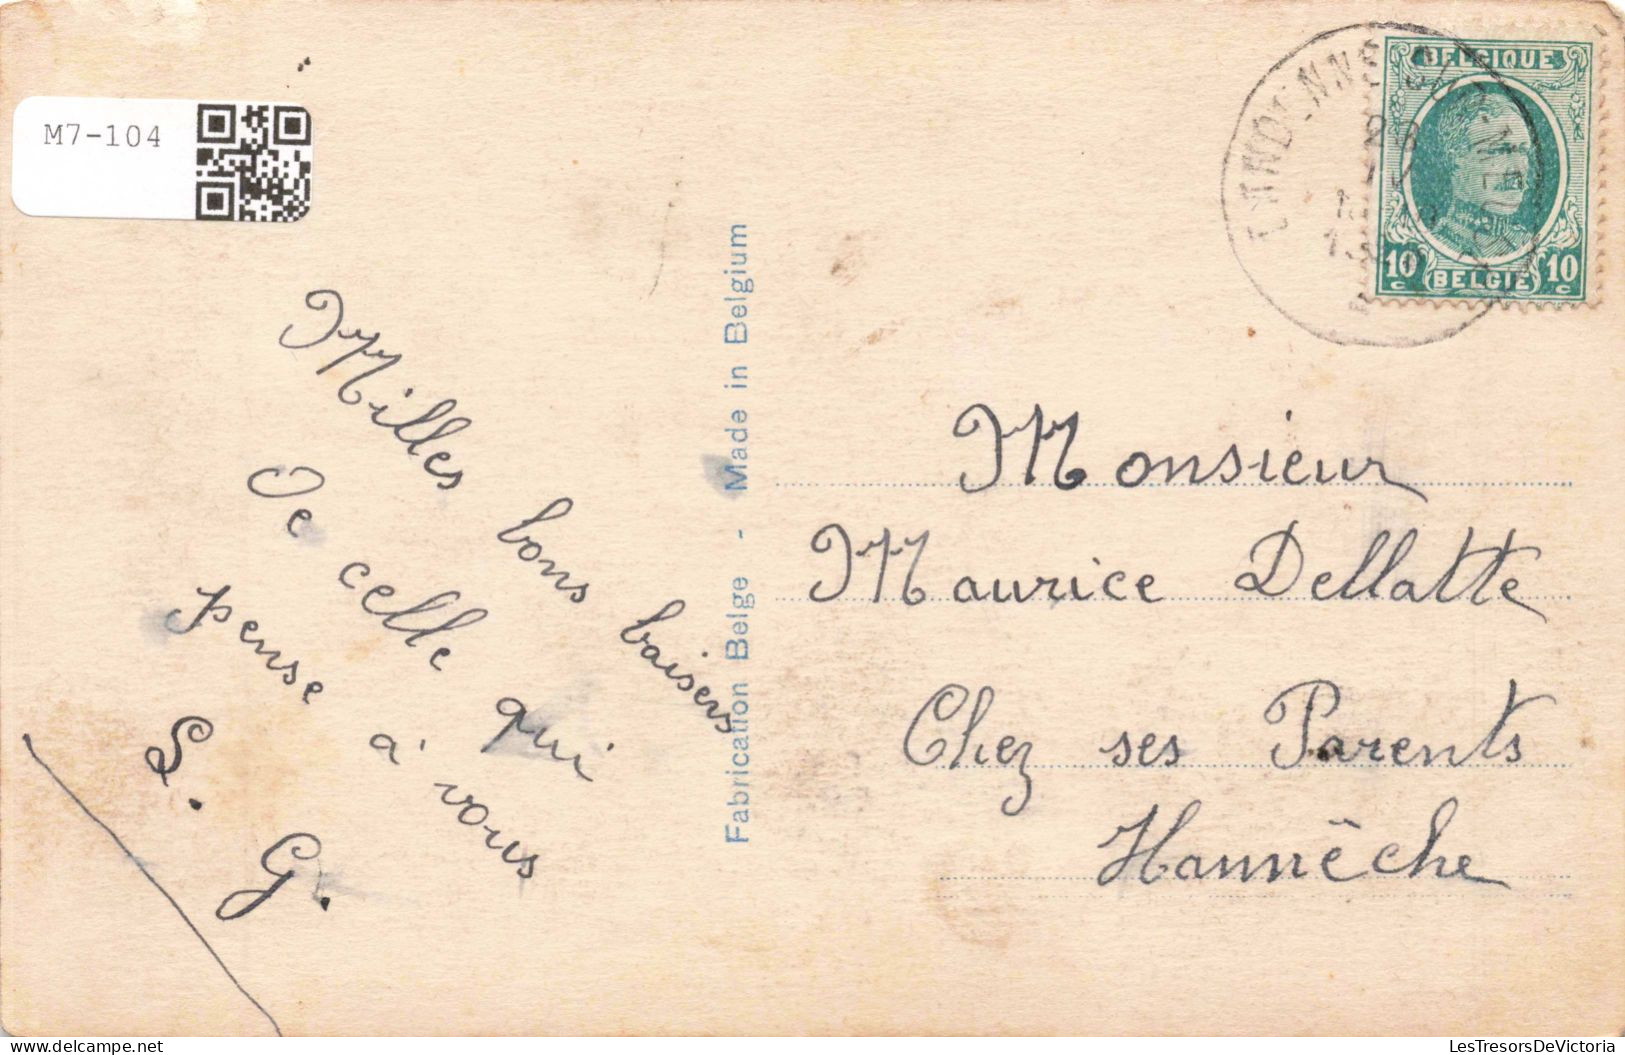 M7-104
BELGIQUE
10 c
10 c
BELGIE
Milles bons baisers
De celle qui
pense à vous
S. G.
Fabrication Belge - Made in Belgium
Monsieur
Maurice Dellatte
Chez ses Parents
Hannêche
LesTresorsDeVictoria.com